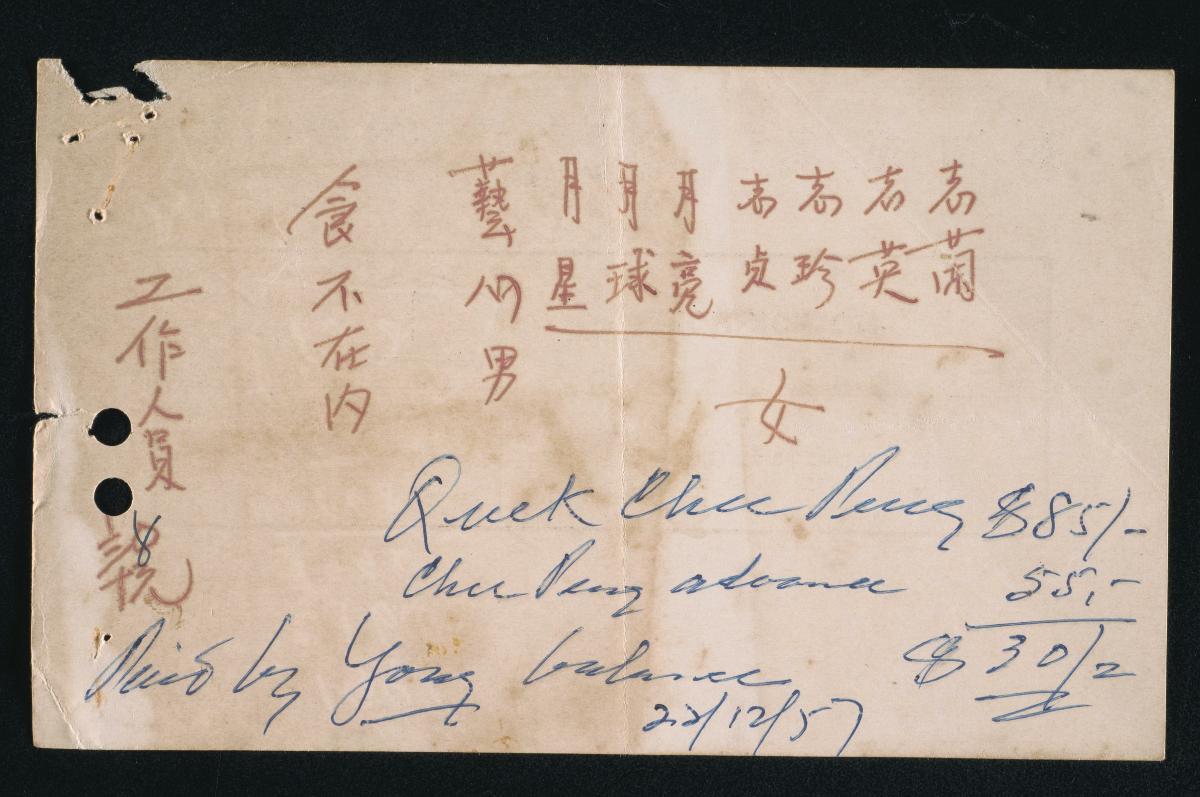 志蘭
志英
志珍
志贞
月亮
月球
月星
女
藝人男
食不在内
工作人員
8
Quek Chee Peng $85/-
Chee Peng advance 55,-
Paid by Yong balance $30/=
22/12/57